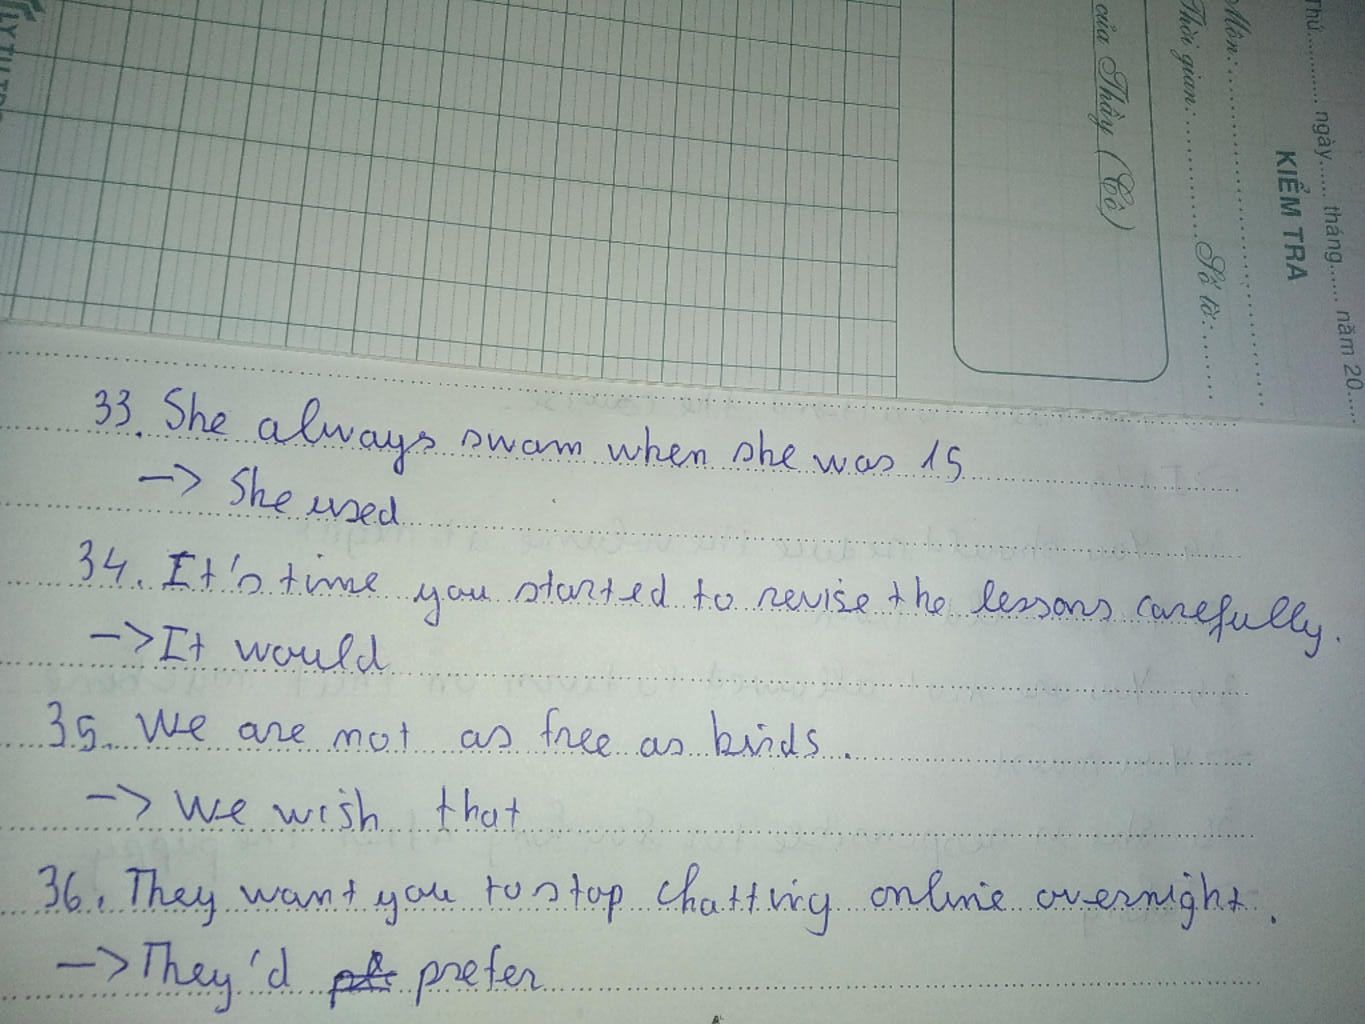 Thứ............ ngày...... tháng...... năm 20.....
KIỂM TRA
Môn:
Thời gian: Số tờ:
của Thầy (Cô)
33. She always swam when she was 15
-> She used
34. It's time you started to revise the lessons carefully.
-> It would
35. We are not as free as birds.
-> We wish that
36. They want you to stop chatting online overnight.
-> They'd prefer